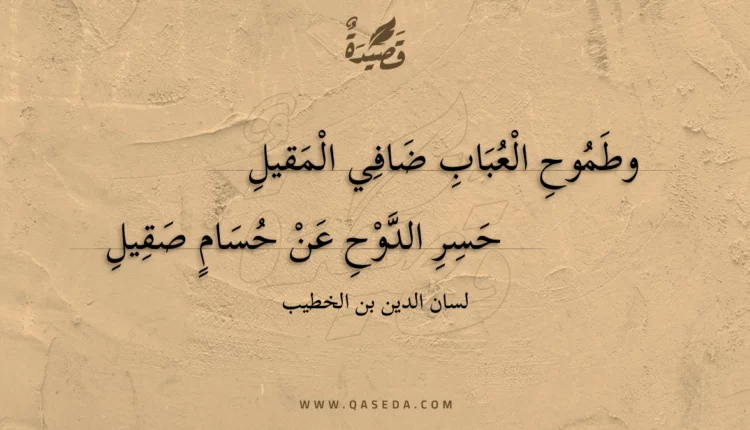 قَصِيْدَةٌ
وطَمُوحِ الْعُبَابِ ضَافِي الْمَقيلِ
حَسِرِ الدَّوْحِ عَنْ حُسَامٍ صَقِيلِ
لسان الدين بن الخطيب
WWW.QASEDA.COM